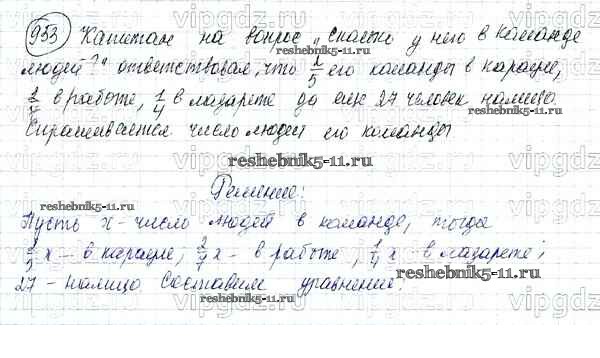 953 Капитан на вопрос „сколько у него в команде
людей?" ответствовал, что 2/5 его команды в карауле,
2/7 в работе, 1/4 в лазарете да еще 27 человек налицо.
Спрашивается число людей его команды
Решение:
Пусть x - число людей в команде, тогда
2/5 x - в карауле, 2/7 x - в работе, 1/4 x - в лазарете;
27 - налицо Составим уравнение:
reshebnik5-11.ru
reshebnik5-11.ru
reshebnik5-11.ru
reshebnik5-11.ru
reshebnik5-11.ru